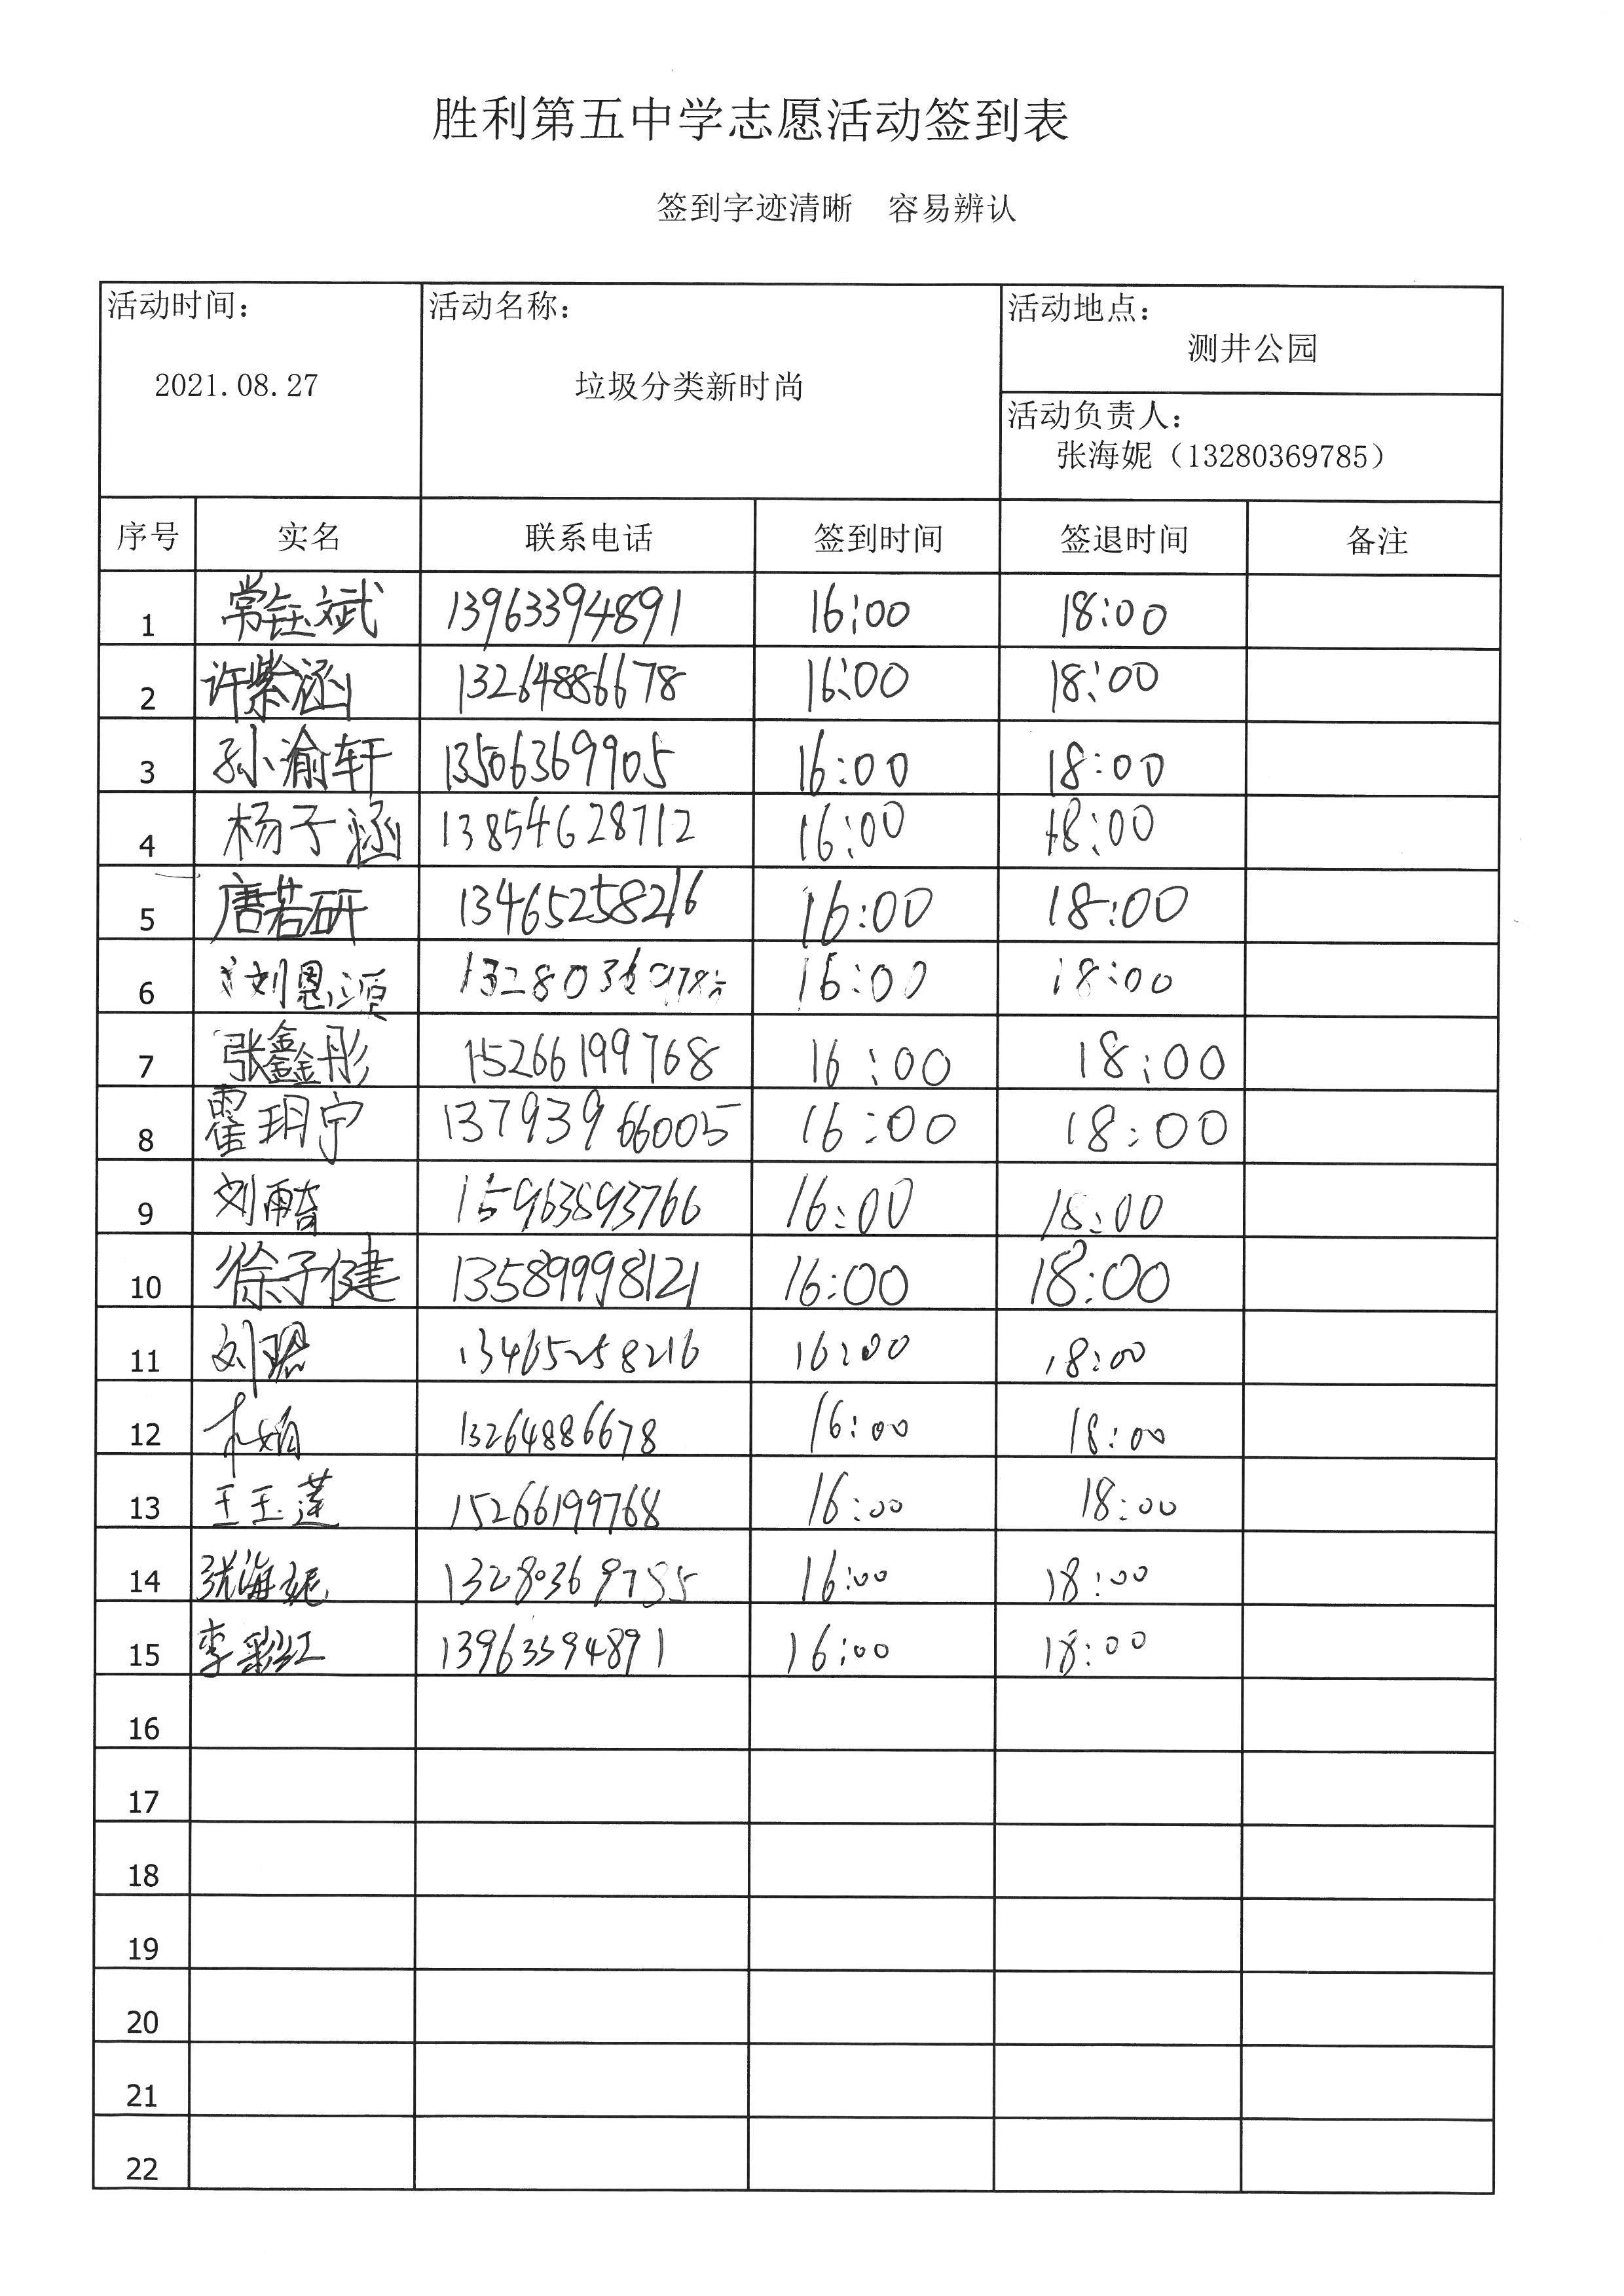 胜利第五中学志愿活动签到表
签到字迹清晰 容易辨认
活动时间： 活动名称： 活动地点：
测井公园
2021.08.27 垃圾分类新时尚
活动负责人：
张海妮（13280369785）
序号 实名 联系电话 签到时间 签退时间 备注
1 常钰斌 13963394891 16:00 18:00
2 许紫涵 13264886678 16:00 18:00
3 孙渝轩 13506369905 16:00 18:00
4 杨子涵 13854628712 16:00 18:00
5 唐若研 13465258216 16:00 18:00
6 刘恩源 13280369785 16:00 18:00
7 张鑫彤 15266199768 16:00 18:00
8 霍玥宁 13793966005 16:00 18:00
9 刘雨奇 15963893766 16:00 18:00
10 徐子健 13589998121 16:00 18:00
11 刘 13465258216 16:00 18:00
12 13264886678 16:00 18:00
13 王玉莲 15266199768 16:00 18:00
14 张海妮 13280369785 16:00 18:00
15 李彩红 13963394891 16:00 18:00
16
17
18
19
20
21
22